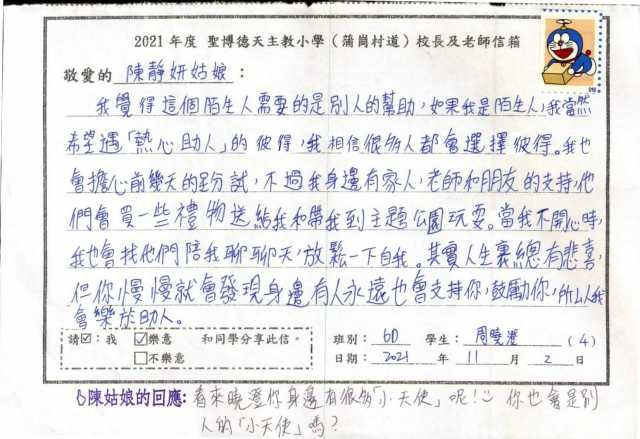 2021年度 聖博德天主教小學（蒲崗村道）校長及老師信箱
敬愛的 陳靜妍姑娘：
我覺得這個陌生人需要的是別人的幫助，如果我是陌生人，我當然
希望遇「熱心助人」的彼得，我相信很多人都會選擇彼得。我也
會擔心前幾天的呈分試，不過我身邊有家人，老師和朋友的支持，他
們會買一些禮物送給我和帶我到主題公園玩耍。當我不開心時，
我也會找他們陪我聊聊天，放鬆一下自我。其實人生裏總有悲喜，
但你慢慢就會發現身邊有人永遠也會支持你，鼓勵你，所以我
會樂於助人。
請☑：我 ☑樂意 和同學分享此信。
□不樂意
班別： 6D 學生： 周曉澄 （4）
日期： 2021 年 11 月 2 日
陳姑娘的回應：看來曉澄你身邊有很多「小天使」呢！你也會是別
人的「小天使」嗎？